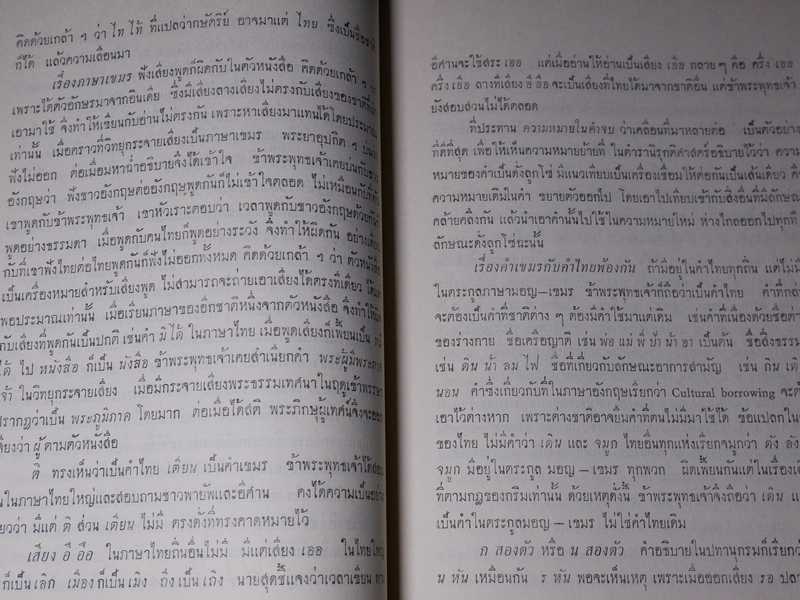 คิดด้วยเกล้า ๆ ว่า ไท ไท้ ที่แปลว่ากษัตริย์ อาจมาแต่ ไทย ซึ่งเป็นชื่อชาติ
ก็ได้ แล้วความเลื่อนมา
เรื่องภาษาเขมร ฟังเสียงพูดก็ผิดกับในตัวหนังสือ คิดด้วยเกล้า ๆ ว่า
เพราะได้ตัวอักษรมาจากอินเดีย ซึ่งมีเสียงลางเสียงไม่ตรงกับเสียงของชาติที่
เอามาใช้ จึงทำให้เขียนกับอ่านไม่ตรงกัน เพราะหาเสียงมาแทนได้โดยประมาณ
เท่านั้น เมื่อคราวที่วิทยุกระจายเสียงเป็นภาษาเขมร พระยาอุปกิต ๆ
ฟังไม่ออก ต่อเมื่อมหาฉ่ำอธิบายจึงได้เข้าใจ ข้าพระพุทธเจ้าเคยบ่นกับชาว
อังกฤษว่า ฟังชาวอังกฤษต่ออังกฤษพูดกันก็ไม่เข้าใจตลอด ไม่เหมือนกับที่
เขาพูดกับข้าพระพุทธเจ้า เขาหัวเราะตอบว่า เวลาพูดกับชาวอังกฤษด้วยกันก็
พูดอย่างธรรมดา เมื่อพูดกับคนไทยก็พูดอย่างระวัง จึงทำให้ผิดกัน อย่างเดียว
กับที่เขาฟังไทยต่อไทยพูดกันก็ฟังไม่ออกทั้งหมด คิดด้วยเกล้า ๆ ว่า ตัวหนังสือ
เป็นเครื่องหมายสำหรับเสียงพูด ไม่สามารถจะถ่ายเอาเสียงได้ตรงทีเดียว ได้แต่
พอประมาณเท่านั้น เมื่อเรียนภาษาของอีกชาติหนึ่งจากตัวหนังสือ จึงทำให้
กับเสียงที่พูดกันเป็นปกติ เช่นคำ มิได้ ในภาษาไทย เมื่อพูดเสียงก็เพี้ยนเป็น
ได้ ไป หนังสือ ก็เป็น นังสือ ข้าพระพุทธเจ้าเคยสำเนียกคำ พระผู้มีพระภาค
เจ้า ในวิทยุกระจายเสียง เมื่อมีกระจายเสียงพระธรรมเทศนาในฤดูเข้าพรรษา
ปรากฏว่าเป็น พระภูมิภาค โดยมาก ต่อเมื่อได้สติ พระภิกษุผู้เทศน์จึงจะออก
เสียงว่า ผู้ ตามตัวหนังสือ
ติ ทรงเห็นว่าเป็นคำไทย เตียน เป็นคำเขมร ข้าพระพุทธเจ้าได้สอบ
นในภาษาไทยใหญ่และสอบถามชาวพายัพและอีศาน คงได้ความเป็นอย่าง
ยวว่า มีแต่ ติ ส่วน เตียน ไม่มี ตรงดั่งที่ทรงคาดหมายไว้
เสียง อึ อือ ในภาษาไทยถิ่นอื่นไม่มี มีแต่เสียง เออ ในไทยใหญ่
ก็เป็น เลิก เมือง ก็เป็น เมิง ถึง เป็น เถิง นายสุดชี้แจงว่าเวลาเขียน ทาง
อีศานจะใช้สระ เออ แต่เมื่ออ่านให้อ่านเป็นเสียง เอือ กลายๆ คือ ครึ่ง เออ
ครึ่ง เอือ ลางที่เสียง อึ อือ จะเป็นเสียงที่ไทยได้มาจากชาติอื่น แต่ข้าพระพุทธเจ้า
ยังสอบสวนไม่ได้ตลอด
ที่ประทาน ความหมายในคำจบ ว่าเคลื่อนที่มาหลายต่อ เป็นตัวอย่าง
ที่ดีที่สุด เพื่อให้เห็นความหมายย้ายที่ ในตำรานิรุกติศาสตร์อธิบายไว้ว่า ความ
หมายของคำเป็นดั่งลูกโซ่ มีแนวเทียบเป็นเครื่องเชื่อมให้ต่อกันเป็นเส้นเดียว คือ
ความหมายเดิมในคำ ขยายตัวออกไป โดยเอาไปเทียบเข้ากับสิ่งอื่นที่มีลักษณะ
คล้ายคลึงกัน แล้วนำเอาคำนั้นไปใช้ในความหมายใหม่ ห่างไกลออกไปทุกที
ลักษณะดั่งลูกโซ่ฉะนั้น
เรื่องคำเขมรกับคำไทยพ้องกัน ถ้ามีอยู่ในคำไทยทุกถิ่น แต่ไม่มี
ในตระกูลภาษามอญ–เขมร ข้าพระพุทธเจ้าก็ถือว่าเป็นคำไทย คำที่กล่าว
จะต้องเป็นคำที่ชาติต่าง ๆ ต้องมีคำใช้มาแต่เดิม เช่นคำที่เนื่องด้วยชื่อต่าง
ของร่างกาย ชื่อเครือญาติ เช่น พ่อ แม่ พี่ ป้า น้า อา เป็นต้น ชื่อสิ่งธรรม
เช่น ดิน น้ำ ลม ไฟ ชื่อที่เกี่ยวกับลักษณะอาการสามัญ เช่น กิน เดิน
นอน คำซึ่งเกี่ยวกับที่ในภาษาอังกฤษเรียกว่า Cultural borrowing จะต้อง
เอาไว้ต่างหาก เพราะต่างชาติอาจยืมคำที่ตนไม่มีมาใช้ได้ ข้อแปลกใน
ของไทย ไม่มีคำว่า เดิน และ จมูก ไทยอื่นทุกแห่งเรียกจมูกว่า ดัง ส่วน
จมูก มีอยู่ในตระกูล มอญ–เขมร ทุกพวก ผิดเพี้ยนกันแต่ในเรื่องเสียง
ที่ตามกฎของกริมเท่านั้น ด้วยเหตุดั่งนี้ ข้าพระพุทธเจ้าจึงถือว่า เดิน
เป็นคำในตระกูลมอญ–เขมร ไม่ใช่คำไทยเดิม
ก สองตัว หรือ น สองตัว คำอธิบายในปทานุกรมก็เรียกว่า
น หัน เหมือนกัน ร หัน พอจะเห็นเหตุ เพราะเมื่อออกเสียง รอ ปลาย